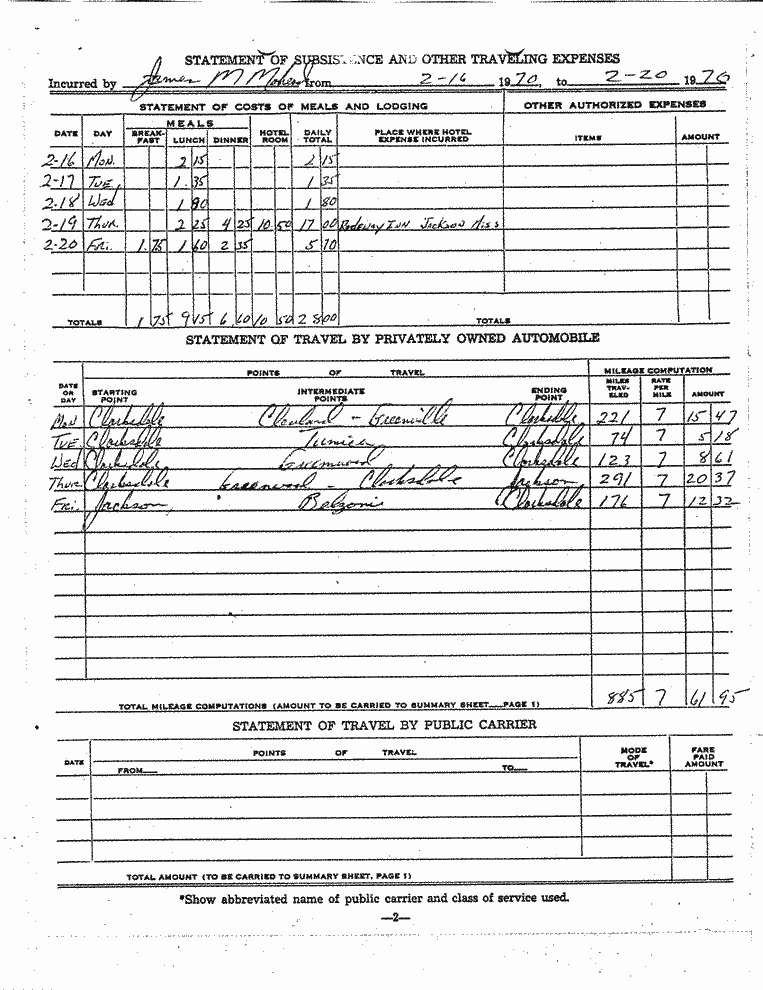 STATEMENT OF SUBSISTENCE AND OTHER TRAVELING EXPENSES
Incurred by James M from 2-16 1970, to 2-20 1970
STATEMENT OF COSTS OF MEALS AND LODGING OTHER AUTHORIZED EXPENSES
DATE DAY MEALS BREAK-FAST LUNCH DINNER HOTEL ROOM DAILY TOTAL PLACE WHERE HOTEL EXPENSE INCURRED ITEMS AMOUNT
2-16 Mon. 2 15 2 15
2-17 Tue, 1.35 1 35
2-18 Wed 1 80 1 80
2-19 Thur. 2 25 4 25 10 50 17 00 Rodeway Inn Jackson Miss
2-20 Fri. 1.75 1 60 2 35 5 70
TOTALS 1 75 9 15 6 60 10 50 28 00 TOTALS
STATEMENT OF TRAVEL BY PRIVATELY OWNED AUTOMOBILE
POINTS OF TRAVEL MILEAGE COMPUTATION
DATE OR DAY STARTING POINT INTERMEDIATE POINTS ENDING POINT MILES TRAV-ELED RATE PER MILE AMOUNT
Mon Clarksdale Cleveland - Greenville Clarksdale 221 7 15 47
Tue Clarksdale Tunica Clarksdale 74 7 5 18
Wed Clarksdale Greenwood Clarksdale 123 7 8 61
Thur. Clarksdale Greenwood - Clarksdale Jackson 291 7 20 37
Fri. Jackson, Belzoni Clarksdale 176 7 12 32
TOTAL MILEAGE COMPUTATIONS (AMOUNT TO BE CARRIED TO SUMMARY SHEET PAGE 1) 885 7 61 95
STATEMENT OF TRAVEL BY PUBLIC CARRIER
DATE POINTS OF TRAVEL MODE OF TRAVEL* FARE PAID AMOUNT
FROM TO
TOTAL AMOUNT (TO BE CARRIED TO SUMMARY SHEET, PAGE 1)
*Show abbreviated name of public carrier and class of service used.
—2—